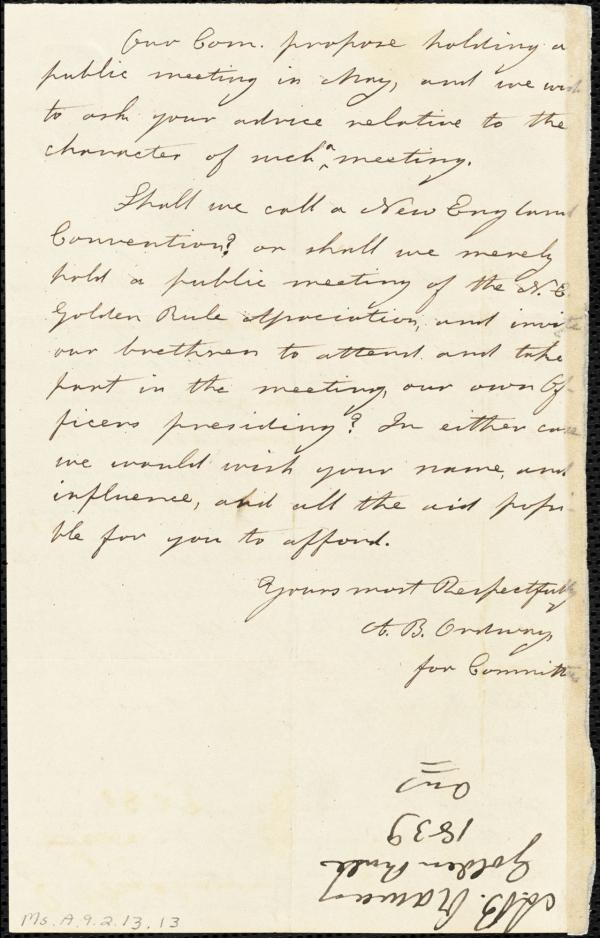 Our Com. propose holding a
public meeting in May, and we wish
to ask your advice relative to the
character of such a meeting.
Shall we call a New England
Convention? or shall we merely
hold a public meeting of the N. E.
Golden Rule Association, and invite
our brethren to attend and take
part in the meeting, our own Of-
ficers presiding? In either case
we would wish your name, and
influence, and all the aid possi-
ble for you to afford.
Yours most Respectfully
A. B. Ordway,
for Committee
A. B.
Golden Rule
1839
Ms. A. 9. 2. 13. 13